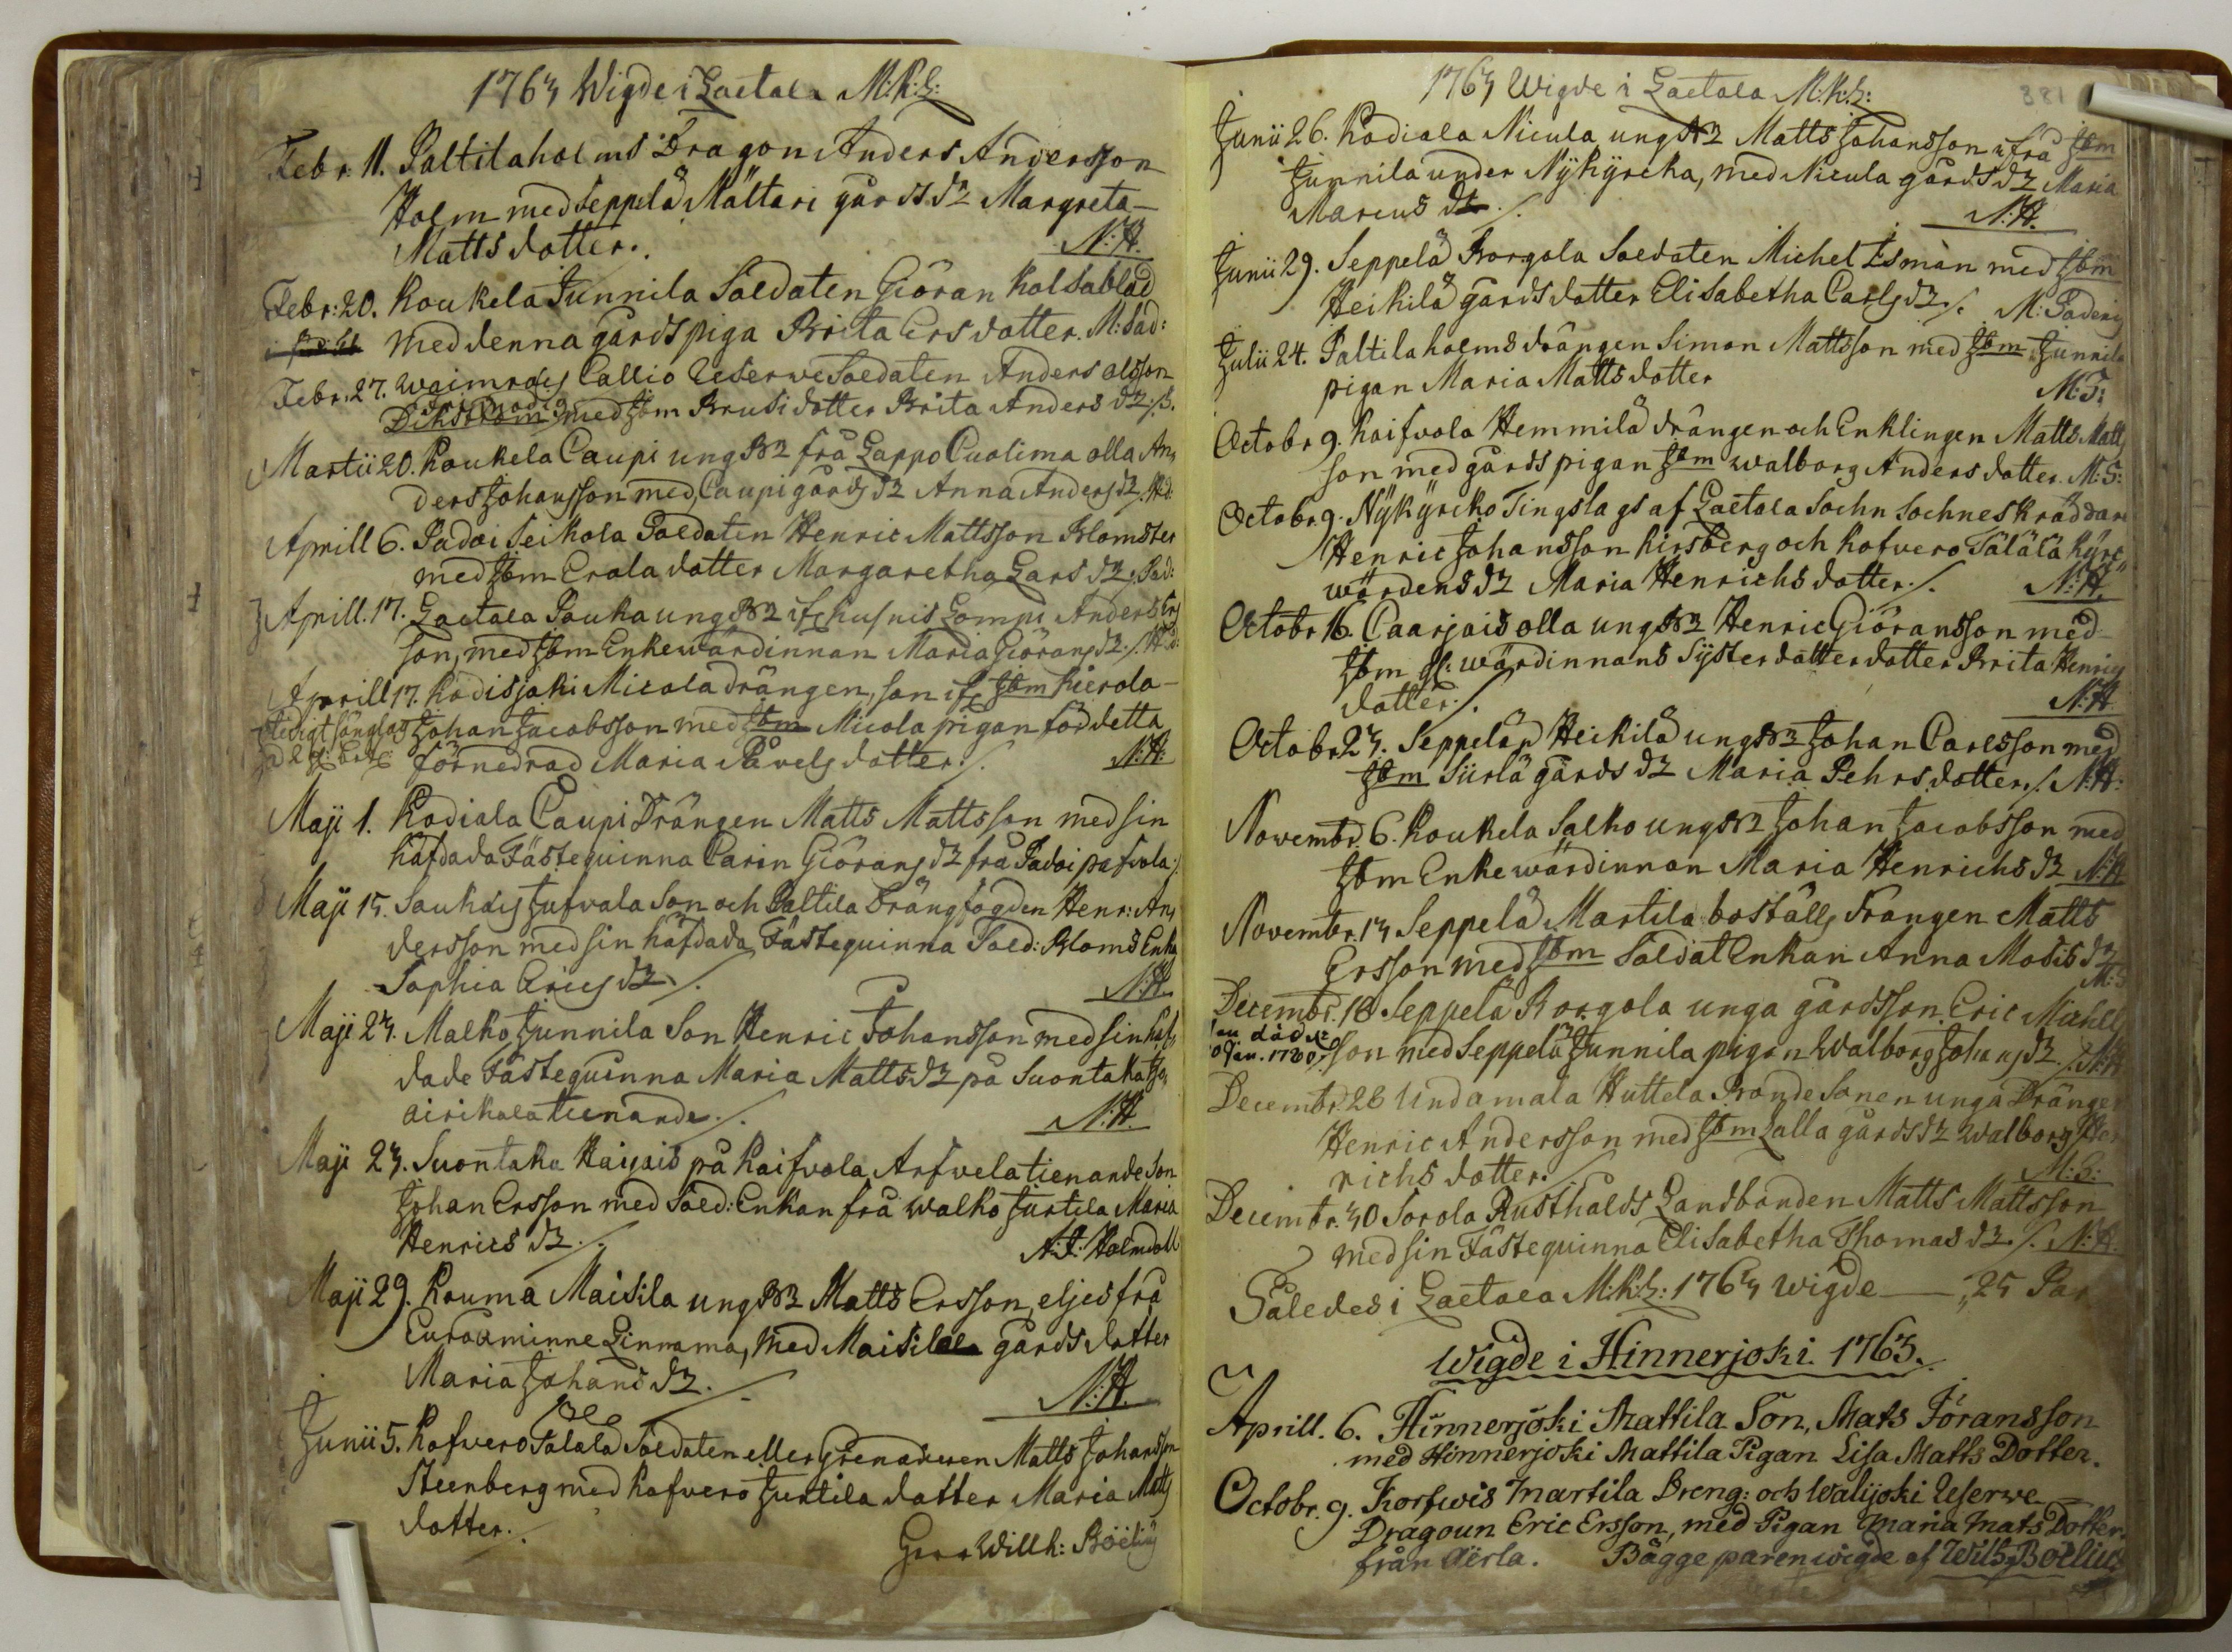 1763 Wigde i Laetala M:K:L:
Febr: 11. Paltilaholms Dragon Anders Andersson
Holm med Seppelä Mältari gårds d:r Margreta
Matts dotter. N:H.
Febr: 20. Koukela Junnila Soldaten Giöran Kalsablad
med denna gårds piga Brita Ers dotter. M: Sad:
Febr: 27. Callio Reserve Soldaten Anders olsson
med Jbm Brusi dotter Brita Anders d:r
Martii 20. Koukela Caupi ung får från Lappo Cuolima olla An,
ders Johansson med Caupi gårds d:r Anna Anders d:r
Aprill 6. Padoi Seikola Soldaten Henric Mattsson Blomster
med Jbm Erola dotter Margaretha Lars d:r Pad:
Aprill. 17. Laetala Pouka ung Anders Ers
son, med Jbm Enkewärdinnan Maria Giörans d:r
Aprill 17. Kodisjoki Micola drängen, son Jbm Kierola
Johan Jacobsson med Jbm Nicola pigan för detta
förnedrad Maria Påvels dotter. N:H:
Maji 1. Kodiala Caupi Drängen Matts Mattsson med sin
häfdada Fästequinna Carin Giörans d:r från Padoi pafvola
Maji 15. Saukois Jufvala Son och Paltila Drängfogden Henr: An,
dersson med sin häfdada Fästequinna Sold: Bloms Enka
Sophia Erics d:r N:H.
Maji 23. Malko Junnila Son Henric Johansson med sin häf,
dade Fästequinna Maria Matts d:r på Suontaka
airikala tienande. N:H.
Maji 23. Suontaka Kaigais på Kaifvola Arfvela tienande Son
Johan Ersson med Sold: Enkan från walko Jurtila Maria
Henrics d:r. N:J: Holmdell
Maji 29. Kouma Maisila ung Matts Ersson, eljes från
Euraminne Linnama, med Maisila gårds dotter
Maria Johans d:r. N:H.
Junii 5. Kofvero Sälälä Soldaten eller Grenaderen Matts Johansson
Steenberg med Kofvero Jurtila dotter Maria Matts
dotter. Willh: Boëlius
1763 Wigde i Laetala M:K:L: 381
Junii 26. Kodiala Nicula ung Matts Johansson ifrå Jbm
Junnila under Nykyrcka, med Nicula gårds d:r Maria
Marcus dr. N:H.
Junii 29. Seppelä Borgola Soldaten Michel Isman med Jbm
Heikilä gårds dotter Elisabetha Carls d:r M: Paderij
Julii 24. Paltilaholms drängen Simon Mattsson med Jbm Junnila
pigan Maria Matts dotter M:P:
Octobr 9. Kaifvola Hemmilä drängen och Enklingen Matts Matts
son med gårds pigan Jbm Walborg Anders dotter. M:S:
Octobr. 9. Nykyrcko Tingslags af Laetala Sochn Sochneskräddare
Henric Johansson Kirsberg och Kofvero Sälälä Kyrc,
wärdens d:r Maria Henrichs dotter. N:H.
Octobr 16. Caarjais olla ung Henric Giöransson med
Jbm wärdinnans Syster dotter dotter Brita Henrics
dotter. N:H.
Octobr 23. Seppeläs Heikilä ung Johan Carlsson med
Jbm Siirlä gårds d:r Maria Pehrs dotter. N:H:
Novembr. 6. Koukela Salho ung Johan Jacobsson med
Jbm Enke wärdinnan Maria Henrichs d:r N:H.
Novembr. 13 Seppelä Martila boställs drängen Matts
Ersson med Jbm Soldat Enkan Anna Mosis d:r M:S
Decembr. 18 Seppelä Borgola unga gårdsson Eric Michels
son med Seppelä Junnila pigan Walborg Johans d:r N:H
Decembr. 26 Undamala Huttela Bonde Sonen unga Drängen
Henric Andersson med Jbm Lalla gårds d:r Walborg Hen
richs dotter. M:S:
Decembr. 30 Sorola Rusthalds Landbonden Matts Mattsson
med sin Fästequinna Elisabetha Thomas d:r. N:H.
Således i Laetala M:K:L: 1763 wigde — 25 Par
Wigde i Hinnerjoki 1763.
Aprill. 6. Hinnerjoki Mattila Son, Mats Jöransson
med Hinnerjoki Mattila Pigan Lisa Matts Dotter.
Octobr. 9. Korfwis Martila Dreng: och Walijoki Reserwe
Dragoun Eric Ersson, med Pigan Maria Mats Dotter
från Aërla. Bägge paren wigde af Wilh: Boëlius